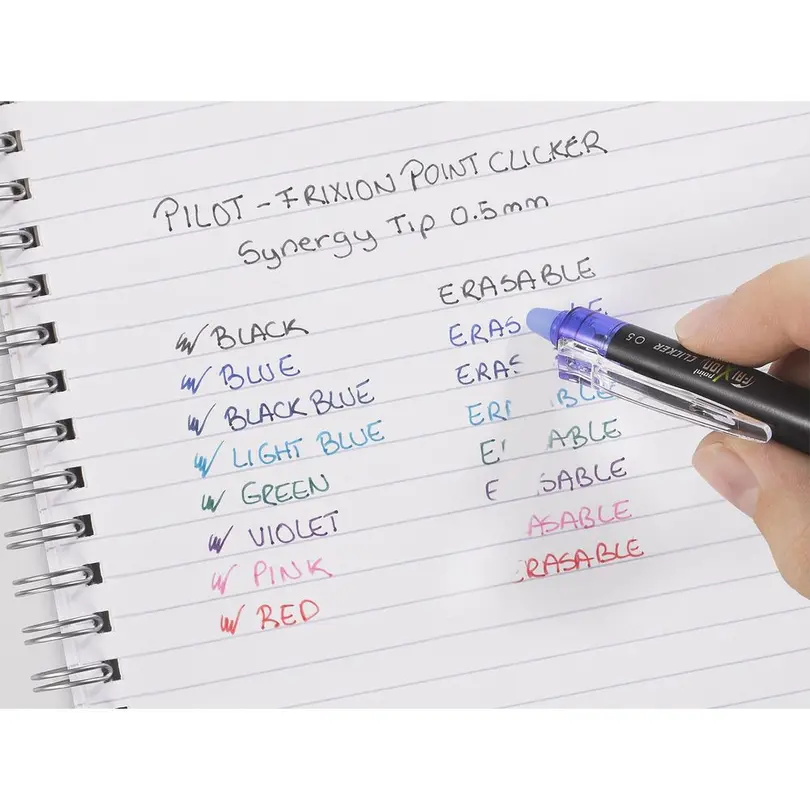 PILOT - FRIXION POINT CLICKER
Synergy Tip 0.5mm
ERASABLE
BLACK
ERAS BLE
BLUE
ERAS
BLACK BLUE
ERI BLE
LIGHT BLUE
E ABLE
GREEN
E SABLE
VIOLET
ASABLE
PINK
RASABLE
RED
FRIXION point CLICKER 0.5